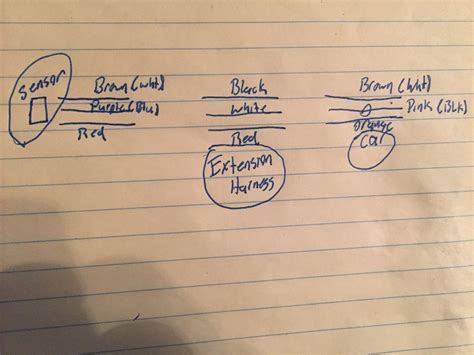 Sensor
Brown (Wht)
Purple (Blu)
Red
Black
White
Red
Extension
Harness
Brown (Wht)
Pink (Blk)
Orange
Car